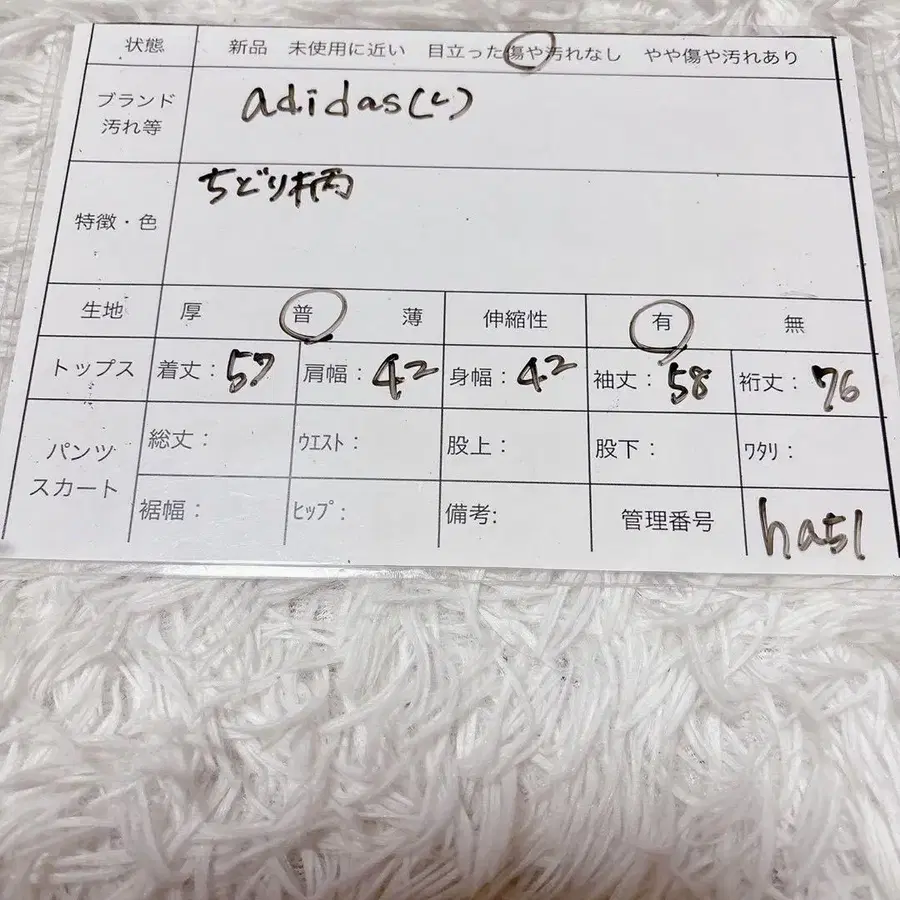 状態 新品 未使用に近い 目立った傷や汚れなし やや傷や汚れあり
ブランド adidas(L)
汚れ等
特徴・色 ちどり柄
生地 厚 普 薄 伸縮性 有 無
トップス 着丈：57 肩幅：42 身幅：42 袖丈：58 裄丈：76
パンツ 総丈： ウエスト： 股上： 股下： ワタリ：
スカート 裾幅： ヒップ： 備考: 管理番号 ha51